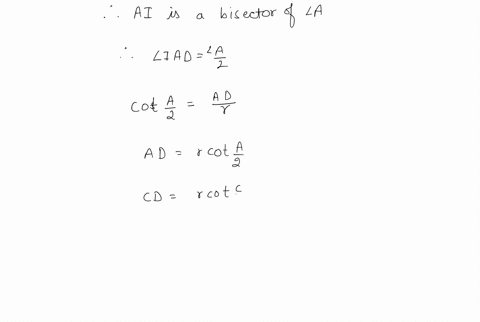 ∴ AI is a bisector of ∠A
∴ ∠IAD = ∠A/2
cot A/2 = AD/r
AD = r cot A/2
CD = r cot C